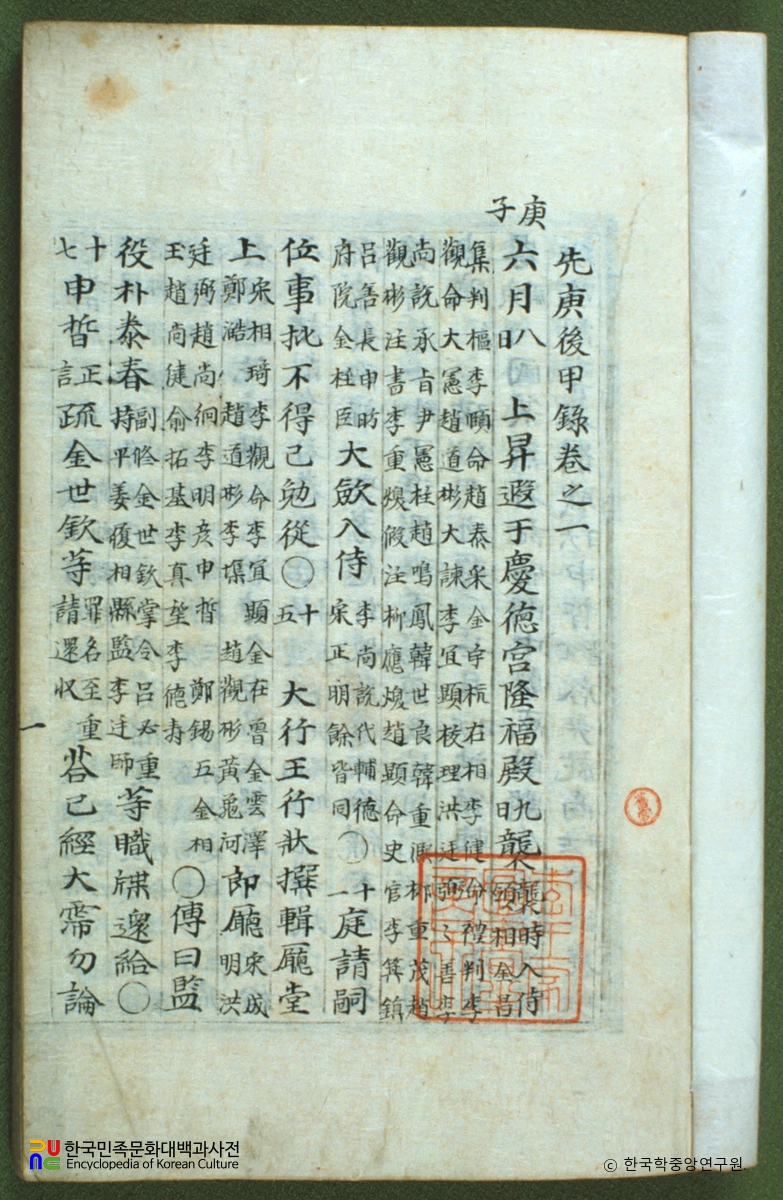 庚子
先庚後甲錄卷之一
六月八日 上昇遐于慶德宮隆福殿九日襲襲時入侍領相金昌
集判樞李頤命趙泰采金宇杭右相李健命禮判李
觀命大憲趙道彬大諫李宜顯校理洪廷弼善李
尚說承旨尹憲柱趙鳴鳳韓世良韓重凞柳重茂趙
觀彬注書李重煥假注柳應煥趙顯命史官李箕鎭
呂善長申昉府院金柱臣大歛入侍李尚說代輔德宋正明餘皆同〇十一庭請嗣
位事批不得已勉從〇十五 大行王行狀撰輯廳堂
上宋相琦李觀命李宜顯金在魯金雲澤鄭澔趙道彬李塈趙觀彬黃龜河郎廳宋成明洪
廷弼趙尚絅李明彦申晳鄭錫五金相玉趙尚健兪拓基李真望李德壽〇傳曰監
役朴泰春副修金世欽掌令呂必重持平姜履相縣監李廷師等職牒還給〇
十七申晳正言疏金世欽等罪名至重請還収答已經大霈勿論
一
한국민족문화대백과사전
Encyclopedia of Korean Culture
© 한국학중앙연구원